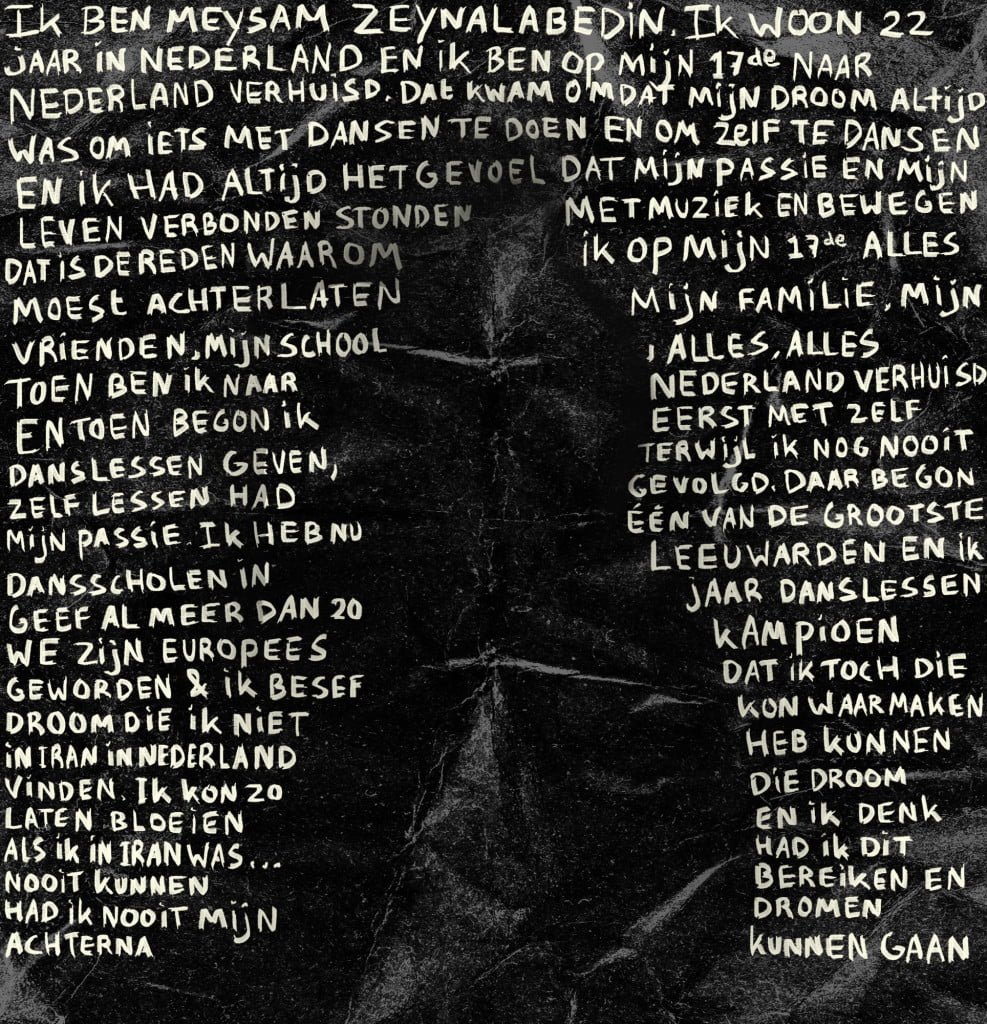 Ik BEN MEYSAM ZEYNALABEDIN. Ik WOON 22
JAAR iN NEDERLAND EN ik BEN OP MijN 17de NAAR
NEDERLAND VERHUISD. DAt KWAM OMDAT MijN DROOM ALtijD
WAS OM iETS MET DANSEN TE DOEN EN OM ZELF TE DANSEN
EN ik HAD ALTijD HET GEVOEL DAT MijN PASSiE EN MijN
LEVEN VERBONDEN STONDEN MET MUZiEK EN BEWEGEN
DAT IS DE REDEN WAAROM ik OP MijN 17de ALLES
MOESt ACHTERLATEN MijN FAMiLiE, MijN
VRiENDEN, MijN SCHOOL , ALLES, ALLES
TOEN BEN ik NAAR NEDERLAND VERHUiSD
EN TOEN BEGON ik EERST MET ZELF
DANSLESSEN GEVEN, TERWijL ik NOG NOOiT
ZELF LESSEN HAD GEVOLGD. DAAR BEGON
MijN PASSiE. Ik HEB NU ÉÉN VAN DE GROOTSTE
DANSSCHOLEN iN LEEUWARDEN EN ik
GEEF AL MEER DAN 20 JAAR DANSLESSEN
WE ZijN EUROPEES kAMPiOEN
GEWORDEN & ik BESEF DAT ik TOCH DiE
DROOM DiE ik NiET KON WAARMAKEN
iN IRAN iN NEDERLAND HEB KUNNEN
ViNDEN. Ik KON 20 DiE DROOM
LATEN BLOEiEN EN ik DENK
ALS ik iN IRAN WAS... HAD ik DiT
NOOiT KUNNEN BEREiKEN EN
HAD ik NOOiT MijN DROMEN
ACHTERNA KUNNEN GAAN